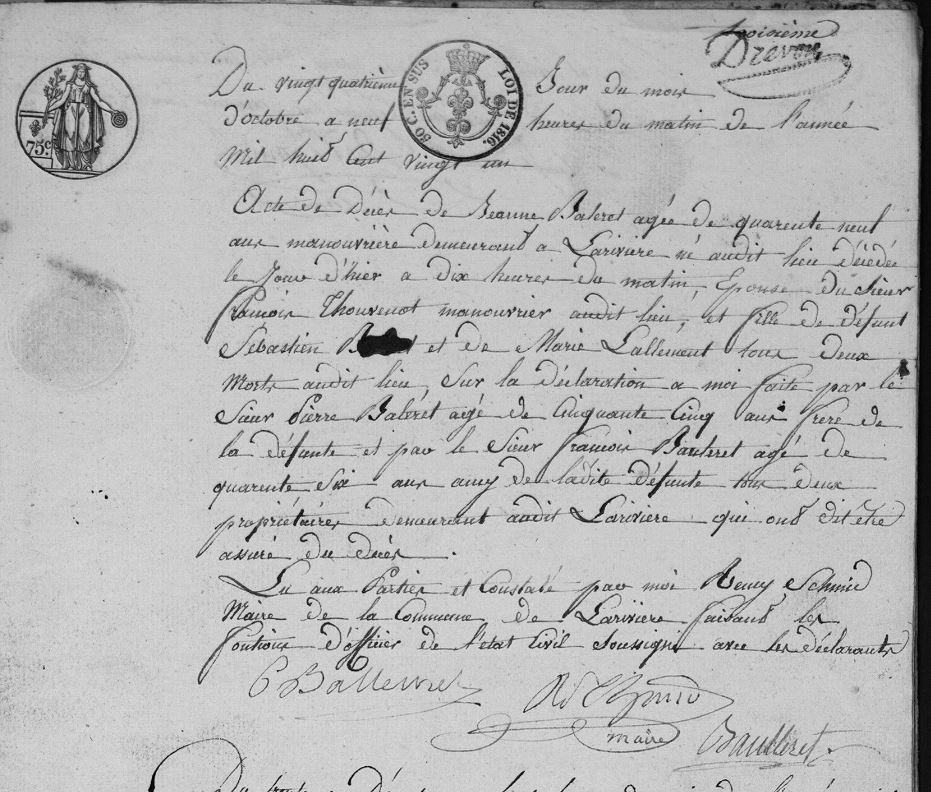 troisième
Drevon
75c
50 C. EN SUS LOI DE 1816.
Du vingt quatrieme Jour du mois
d'octobre a neuf heures du matin de l'année
Mil huit Cent vingt un
Acte de Décès de Jeanne Baleret agée de quarente neuf
ans manouvrière demeurant a Lariviere né audit lieu décédée
le Jour d'hier a dix heures du matin, Epouse du Sieur
francois Thouvenot manouvrier audit lieu, et fille de défunt
Sébastien et de Marie Lallement tous deux
Morts audit lieu, Sur la déclaration a moi faite par le
Sieur Pierre Baléret agé de Cinquante Cinq ans frere de
la défunte et par le Sieur francois Bauleret agé de
quarente Six ans amy de ladite défunte tous deux
propriétaires demeurant audit Lariviere qui ont dit etre
assuré du décès.
Lu aux Parties et Constaté par moi Remy Schmid
Maire de la Commune de Lariviere faisant les
fontions d'officier de l'état Civil Soussigné avec les déclarants
maire Baulleret